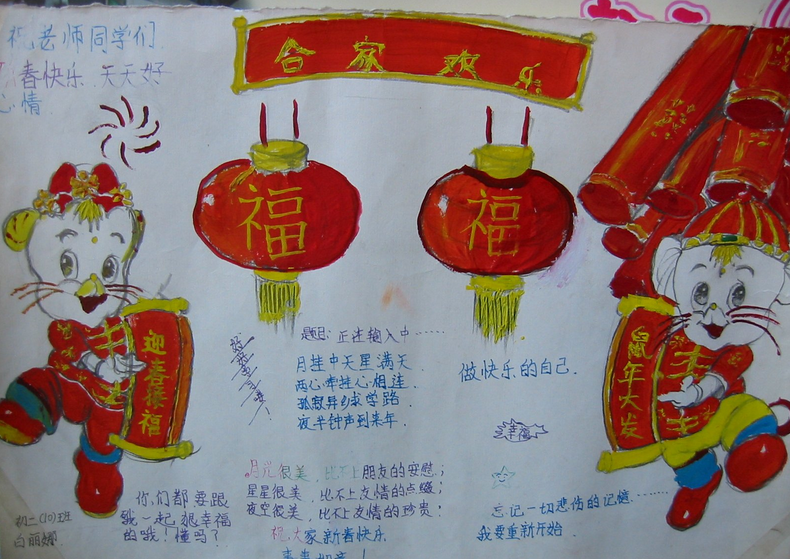 祝老师同学们
春快乐 天天好
心情
合家欢乐
福
福
迎春接福
鼠年大发
题目: 正在输入中……
月挂中天星满天
两心牵挂心相连
孤寂异乡求学路
夜半钟声到来年.
做快乐的自己.
幸福
月光很美, 比不上朋友的安慰;
星星很美, 比不上友情的点缀;
夜空很美, 比不上友情的珍贵!
祝大家新春快乐
你们都要跟
我一起很幸福
的哦! 懂吗?
忘记一切悲伤的记忆……
我要重新开始.
初二(10)班
白丽娜